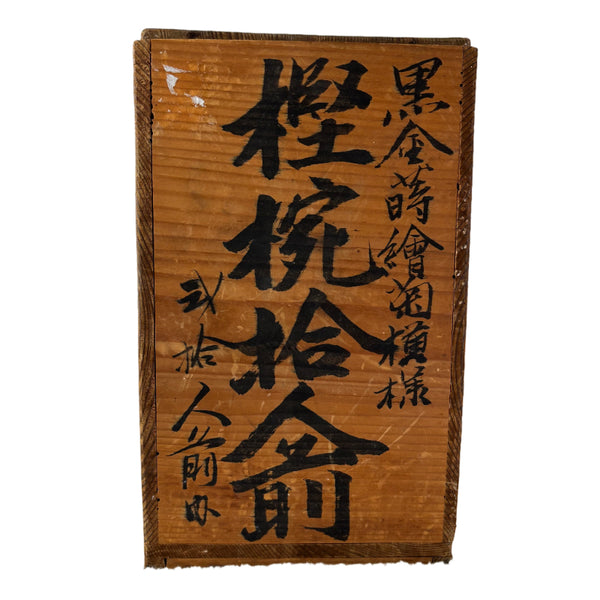 黒金蒔繪菊模様
樫椀拾人前
弐拾人前内